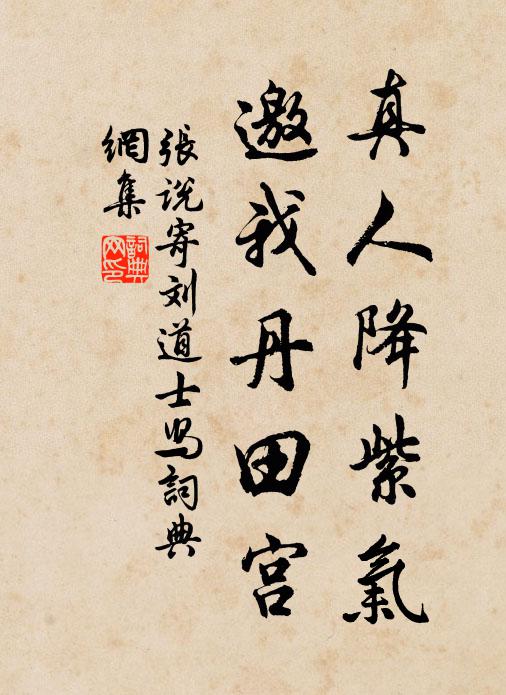 真人降紫氣
邀我丹田宫
張说寄刘道士写詞典
網集
詞典
网印